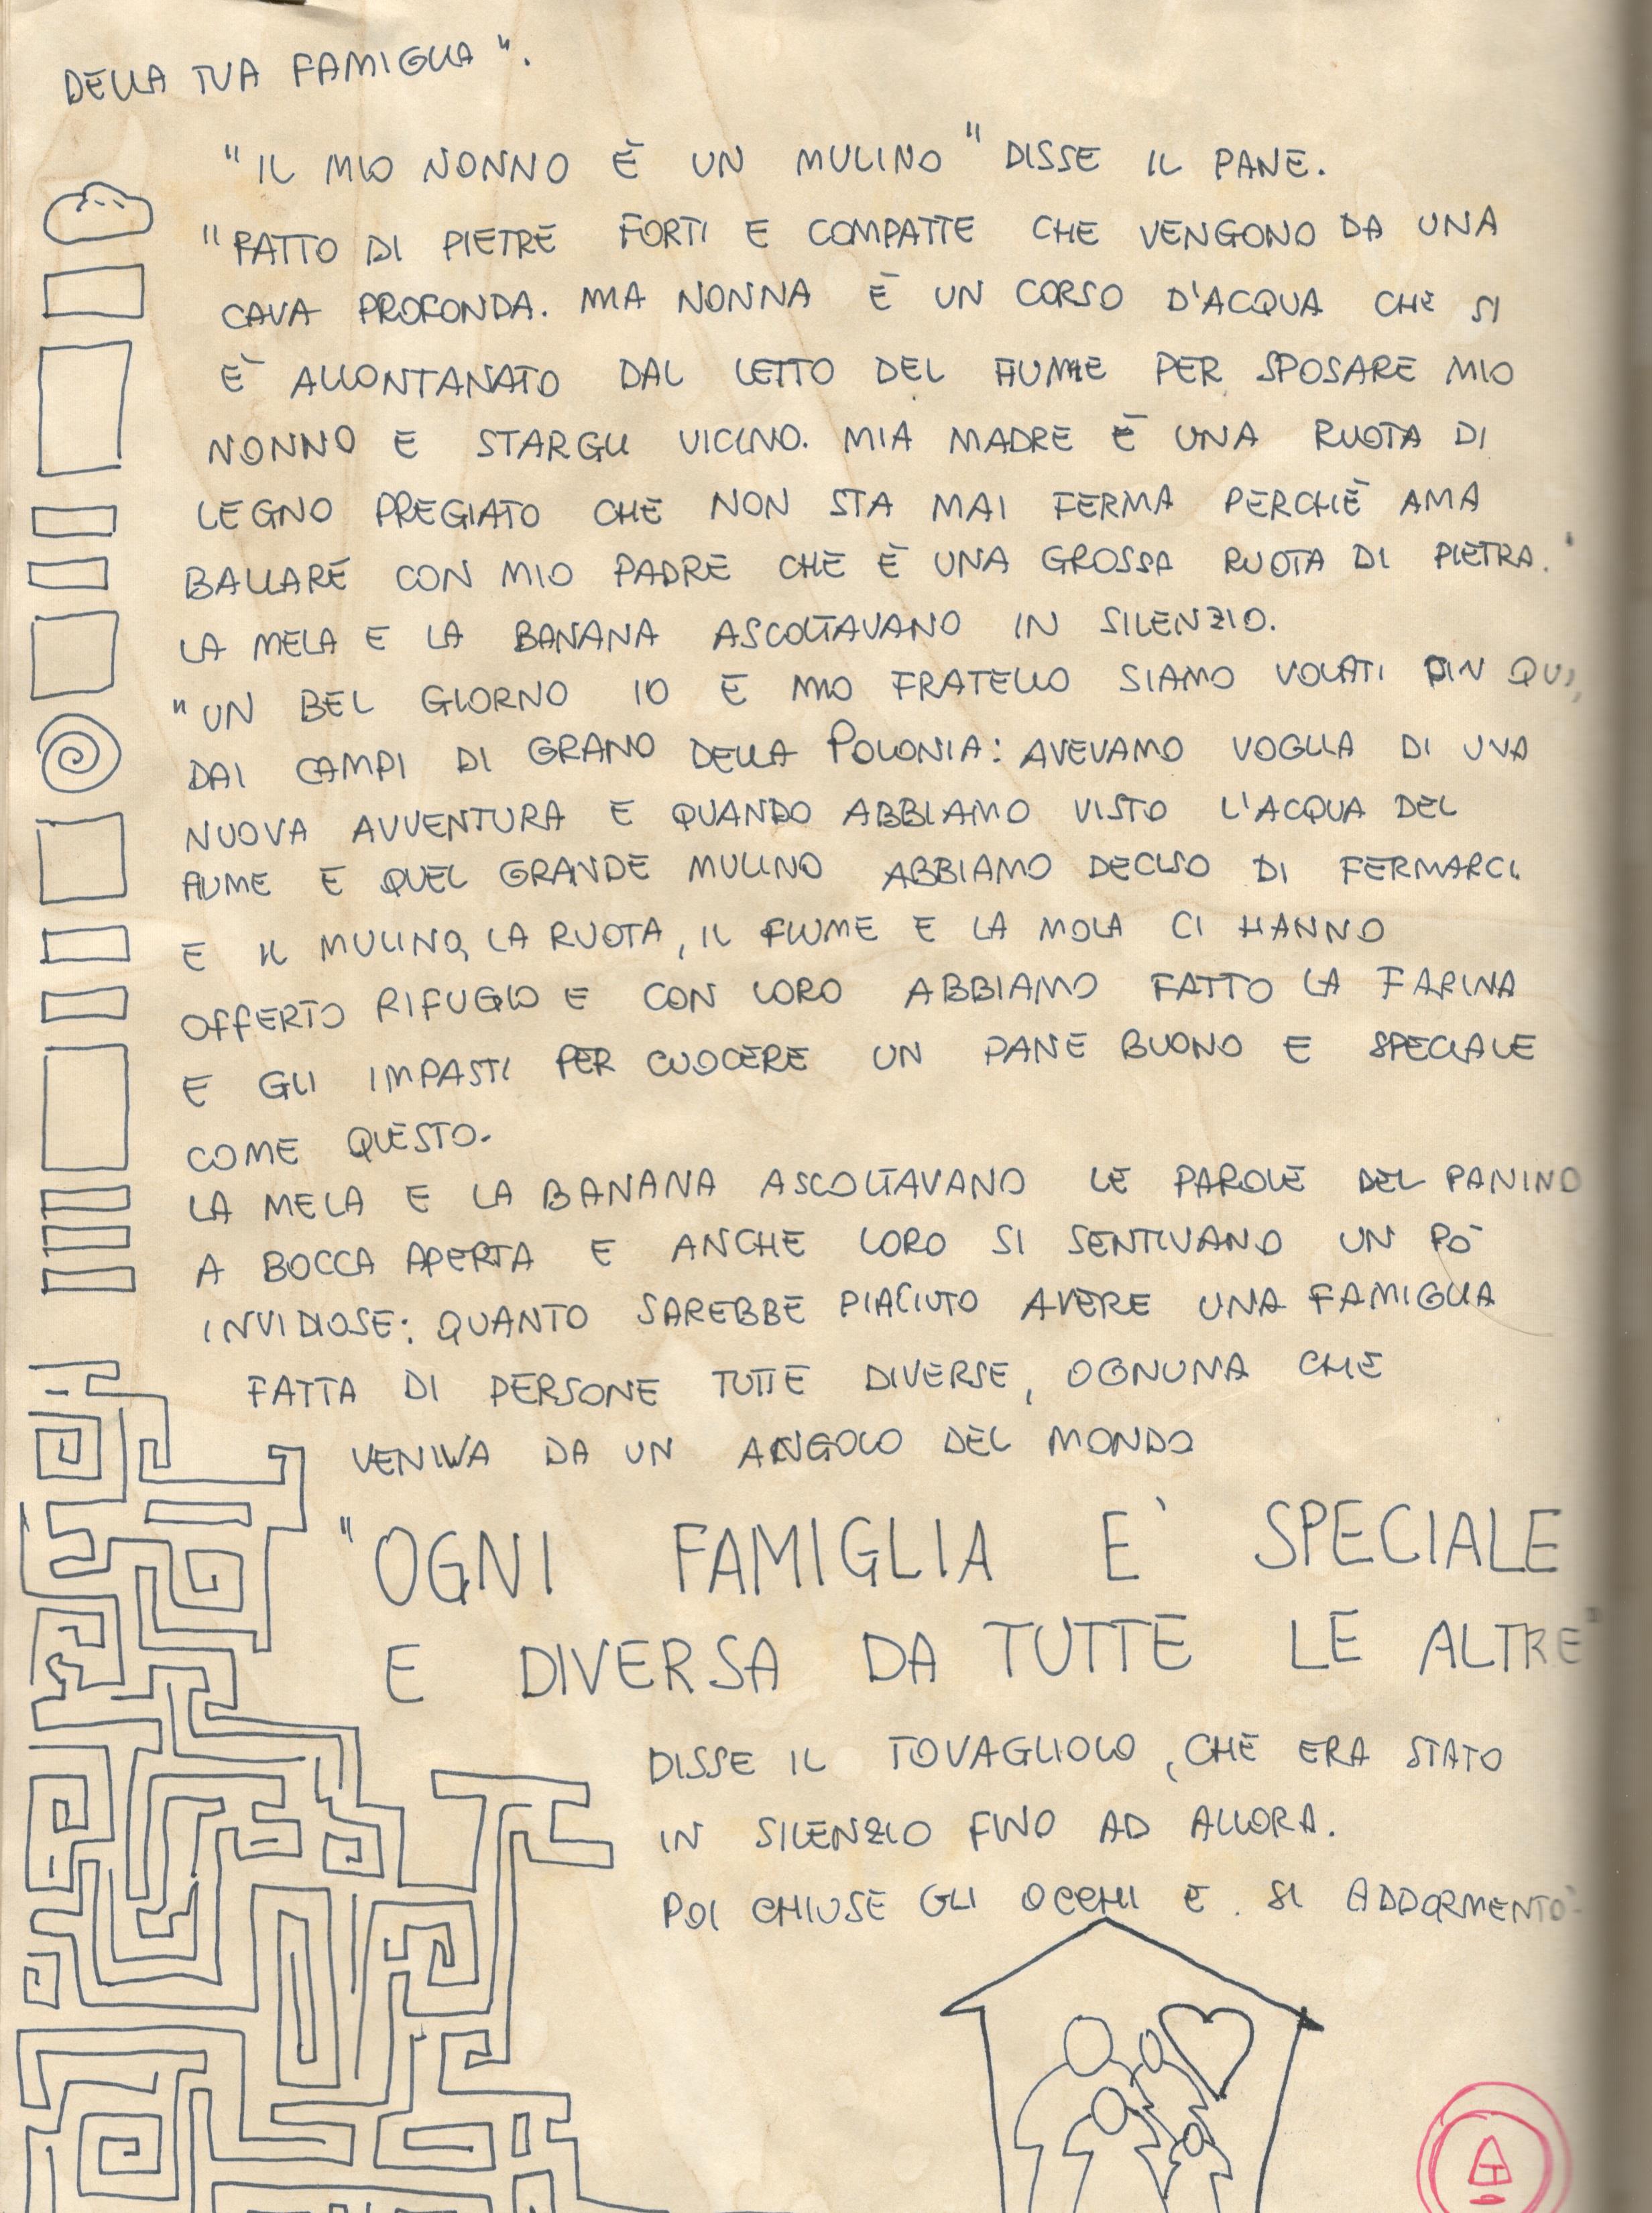 DELLA TUA FAMIGLIA".
"IL MIO NONNO È UN MULINO" DISSE IL PANE.
"FATTO DI PIETRE FORTI E COMPATTE CHE VENGONO DA UNA
CAVA PROFONDA. MIA NONNA È UN CORSO D'ACQUA CHE SI
È ALLONTANATO DAL LETTO DEL FIUME PER SPOSARE MIO
NONNO E STARGLI VICINO. MIA MADRE È UNA RUOTA DI
LEGNO PREGIATO CHE NON STA MAI FERMA PERCHÈ AMA
BALLARE CON MIO PADRE CHE È UNA GROSSA RUOTA DI PIETRA."
LA MELA E LA BANANA ASCOLTAVANO IN SILENZIO.
"UN BEL GIORNO IO E MIO FRATELLO SIAMO VOLATI FIN QUI,
DAI CAMPI DI GRANO DELLA POLONIA: AVEVAMO VOGLIA DI UNA
NUOVA AVVENTURA E QUANDO ABBIAMO VISTO L'ACQUA DEL
FIUME E QUEL GRANDE MULINO ABBIAMO DECISO DI FERMARCI.
E IL MULINO, LA RUOTA, IL FIUME E LA MOLA CI HANNO
OFFERTO RIFUGIO E CON LORO ABBIAMO FATTO LA FARINA
E GLI IMPASTI PER CUOCERE UN PANE BUONO E SPECIALE
COME QUESTO.
LA MELA E LA BANANA ASCOLTAVANO LE PAROLE DEL PANINO
A BOCCA APERTA E ANCHE LORO SI SENTIVANO UN PÒ
INVIDIOSE: QUANTO SAREBBE PIACIUTO AVERE UNA FAMIGLIA
FATTA DI PERSONE TUTTE DIVERSE, OGNUNA CHE
VENIVA DA UN ANGOLO DEL MONDO
"OGNI FAMIGLIA E' SPECIALE
E DIVERSA DA TUTTE LE ALTRE"
DISSE IL TOVAGLIOLO, CHE ERA STATO
IN SILENZIO FINO AD ALLORA.
POI CHIUSE GLI OCCHI E SI ADDORMENTÒ.